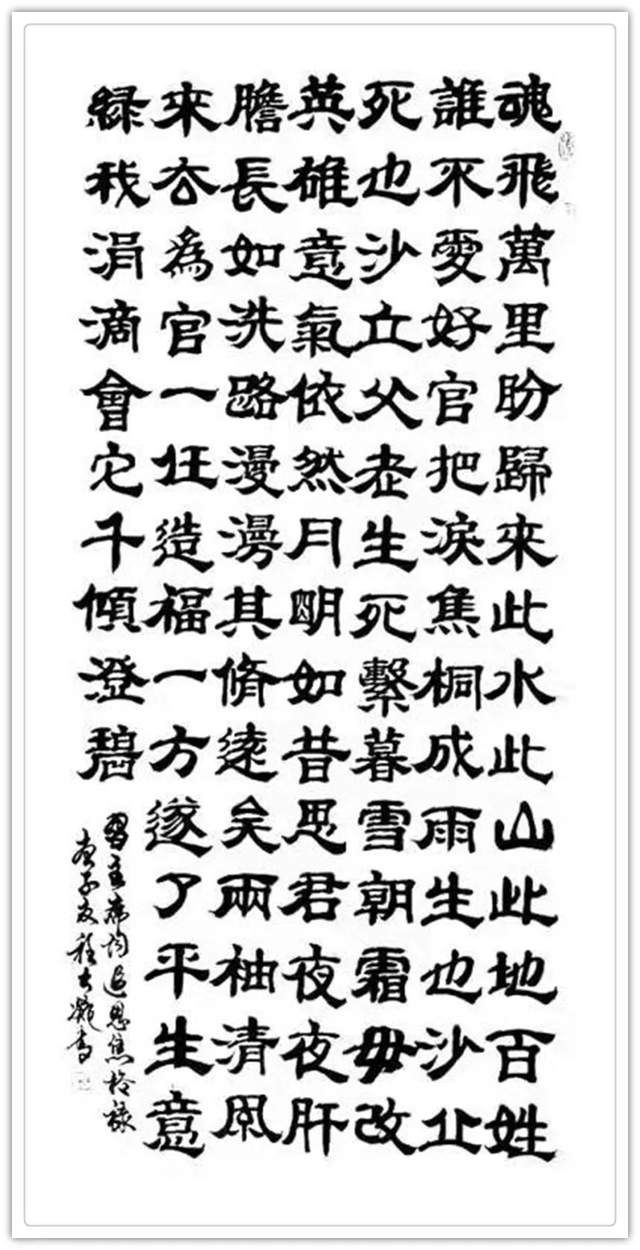 魂飛萬里盼歸來此水此山此地百姓
誰不愛好官把淚焦桐成雨生也沙丘
死也沙丘父老生死繫暮雪朝霜毋改
英雄意氣依然月明如昔思君夜夜肝
膽長如洗路漫漫其脩遠矣兩袖清風
來去為官一任造福一方遂了平生意
綠我涓滴會它千傾澄碧
習主席詞追思焦裕祿
庚子夏程大凝書